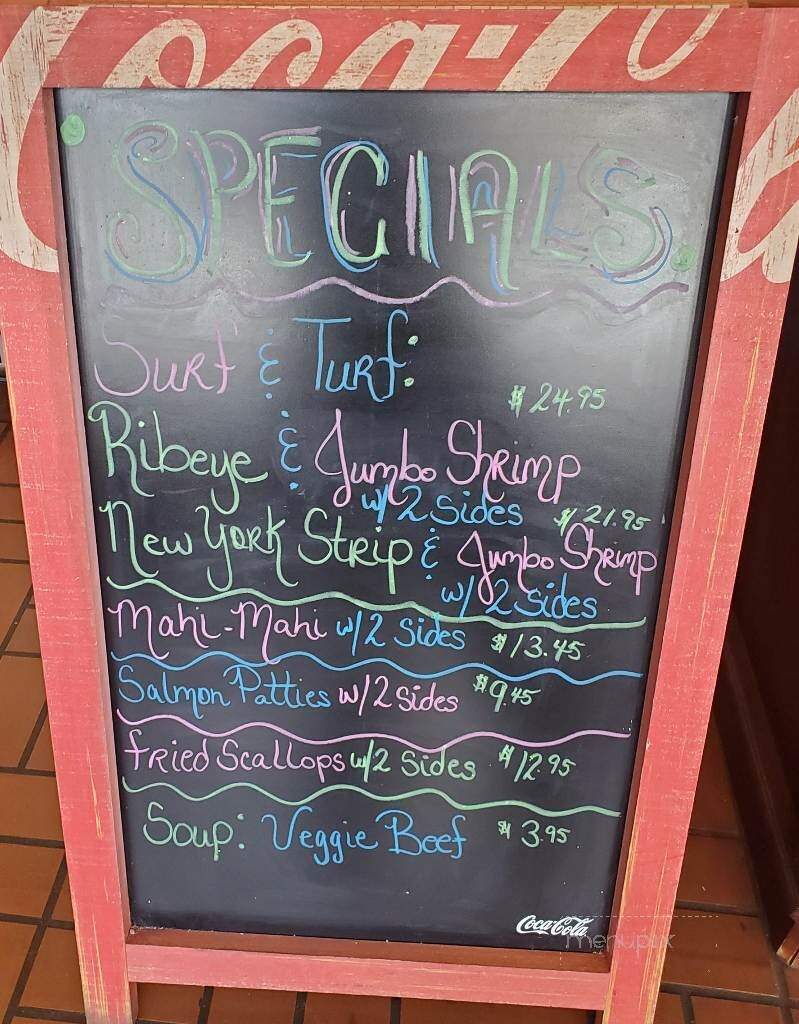 Coca-Cola
SPECIALS
Surf & Turf:
$24.95
Ribeye & Jumbo Shrimp
w/ 2 Sides $21.95
New York Strip & Jumbo Shrimp
w/ 2 Sides
Mahi-Mahi w/2 Sides $13.45
Salmon Patties w/2 Sides $9.45
Fried Scallops w/2 Sides $12.95
Soup: Veggie Beef $3.95
Coca-Cola
menupix